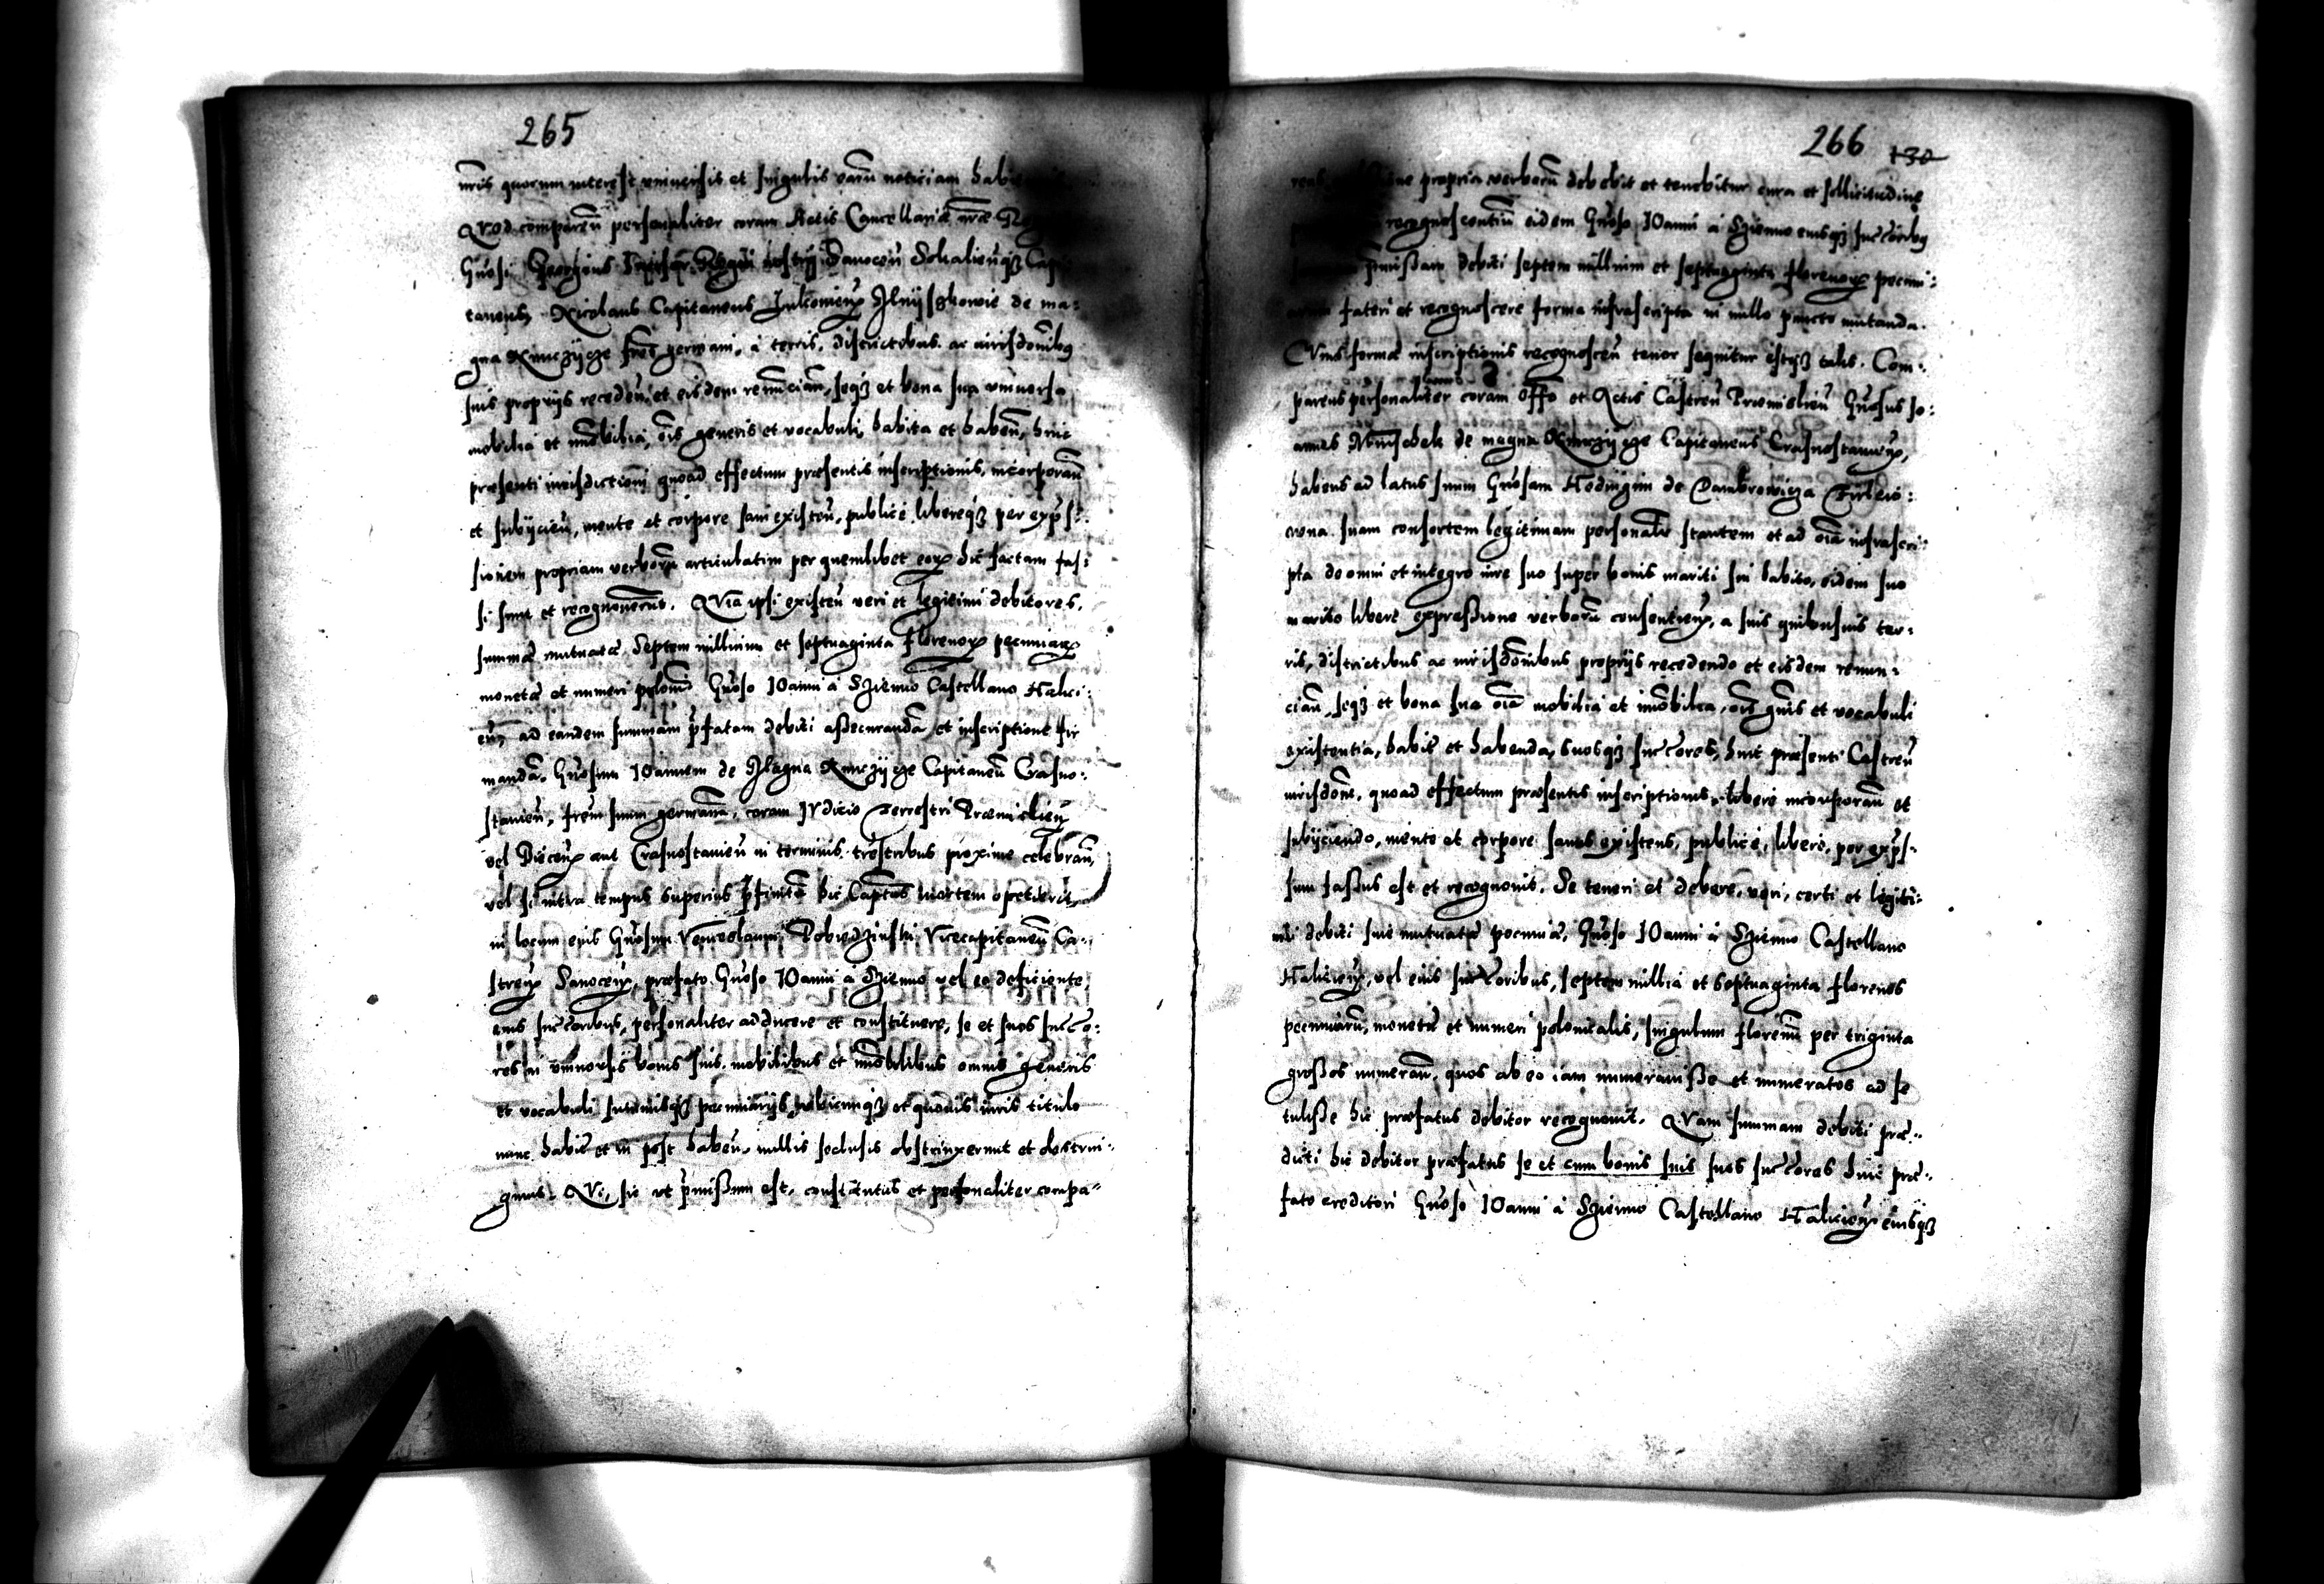 265
nr̃is quorum interest vniuersis et singulis earũ noticiam habe
Quod comparen̄ personaliter coram Actis Cancellariæ nr̃æ
Gnosi Georgius nostri Sanocen̄ Sokalien̄qȝ Capi
taneus, Nicolaus Capitaneus de ma:
gna Kmczycze fres germani, à terris, districtibus ac iurisdonibus
suis proprijs receden̄, et eisdem renuncian̄, seqȝ et bona sua vniuersa
mobilia et imobilia, ois generis et vocabuli, habita et haben̄, huic
præsenti iurisdictioni quoad effectum præsentis inscriptionis, incorporan̄
et subijcien̄, mente et corpore sani existen̄, publice libereqȝ per exps:
sionem propriam verborũ articulatim per quemlibet eorꝝ hic factam fas:
si sunt et recognouerunt. Quia ipsi existen̄ veri et legitimi debitores,
summæ mutuatæ Septem millium et septuaginta florenorꝝ pecuniarꝝ
monetæ et numeri polon̄ Gnoso Ioanni à Szienno Castellano Halici:
en̄, ad eandem summam p̄fatam debiti assecurandã et inscriptione fir
mandã, Gnosum Ioannem de Magna Kmczycze Capitaneũ Crasno:
stauien̄, frem suum germanũ, coram Iudicio Terrestri Præmislien̄
vel aut Crasnostauien̄ in terminis trestribus proxime celebran̄,
vel si intra tempus superius p̄finitũ hic Captneus mortem opetierit
in locum eius Gnosum Venceslaum Vicecapitaneũ Ca:
stren̄ Sanocen̄, præfato Gnoso Ioanni à Szienno vel eo deficiente
eius succoribus, personaliter adducere et constituere, se et suos succo:
res in vniuersis bonis suis mobilibus et imobilibus omnis generis
et vocabuli summisqȝ pecuniarijs vbicunqȝ et quouis iuris titulo
nunc habit̃ et in post haben̄, nullis seclusis obstrinxerunt et obstrin:
gunt. Qui, sic vt p̄missum est, constitutus et personaliter compa:
266 130
propria verborũ debebit et tenebitur cura et sollicitudine
recognoscentiũ eidem Gnoso Ioanni à Szienno eiusqȝ succoribus
p̄missam debiti septem millium et septuaginta florenorꝝ pecuni:
fateri et recognoscere forma infrascripta in nullo puncto mutanda.
Cuius formæ inscriptionis recognoscen̄ tenor sequitur estqȝ talis. Com:
parens personaliter coram Offo et Actis Castren̄ Præmislien̄ Gnosus Io:
annes de magna Kmczycze Capitaneus Crasnostauien̄,
habens ad latus suum Gnosam Hedwigim de Dambrowicza
suam consortem legitimam personalr̃ stantem et ad oia infrascri:
pta de omni et integro iure suo super bonis mariti sui habito, eidem suo
marito libere expressione verborũ consentien̄, a suis quibusuis ter:
ris, districtibus ac iurisdonibus proprijs recedendo et eisdem renun:
cian̄, seqȝ et bona sua oia mobilia et imobilia, ois gnis et vocabuli
existentia, habit̃ et habenda, suosqȝ succores, huic præsenti Castren̄
iurisdoni, quoad effectum præsentis inscriptionis, libere incorporan̄ et
subijciendo, mente et corpore sanus existens, publice, libere, per exps:
sum fassus est et recognouit. Se teneri et debere, veri, certi et legiti:
mi debiti siue mutuatæ pecuniæ, Gnoso Ioanni à Szienno Castellano
Halicien̄, vel eius succoribus, septem millia et septuaginta florenos
pecuniarũ, monetæ et numeri polonicalis, singulum florenũ per triginta
grossos numeran̄, quos ab eo iam numerauisse et numeratos ad se
tulisse hic præfatus debitor recognouit. Quam summam debiti præ:
dicti hic debitor præfatus se et cum bonis suis suos succores huic præ:
fato creditori Gnoso Ioanni à Szienno Castellano Halicien̄ eiusqȝ